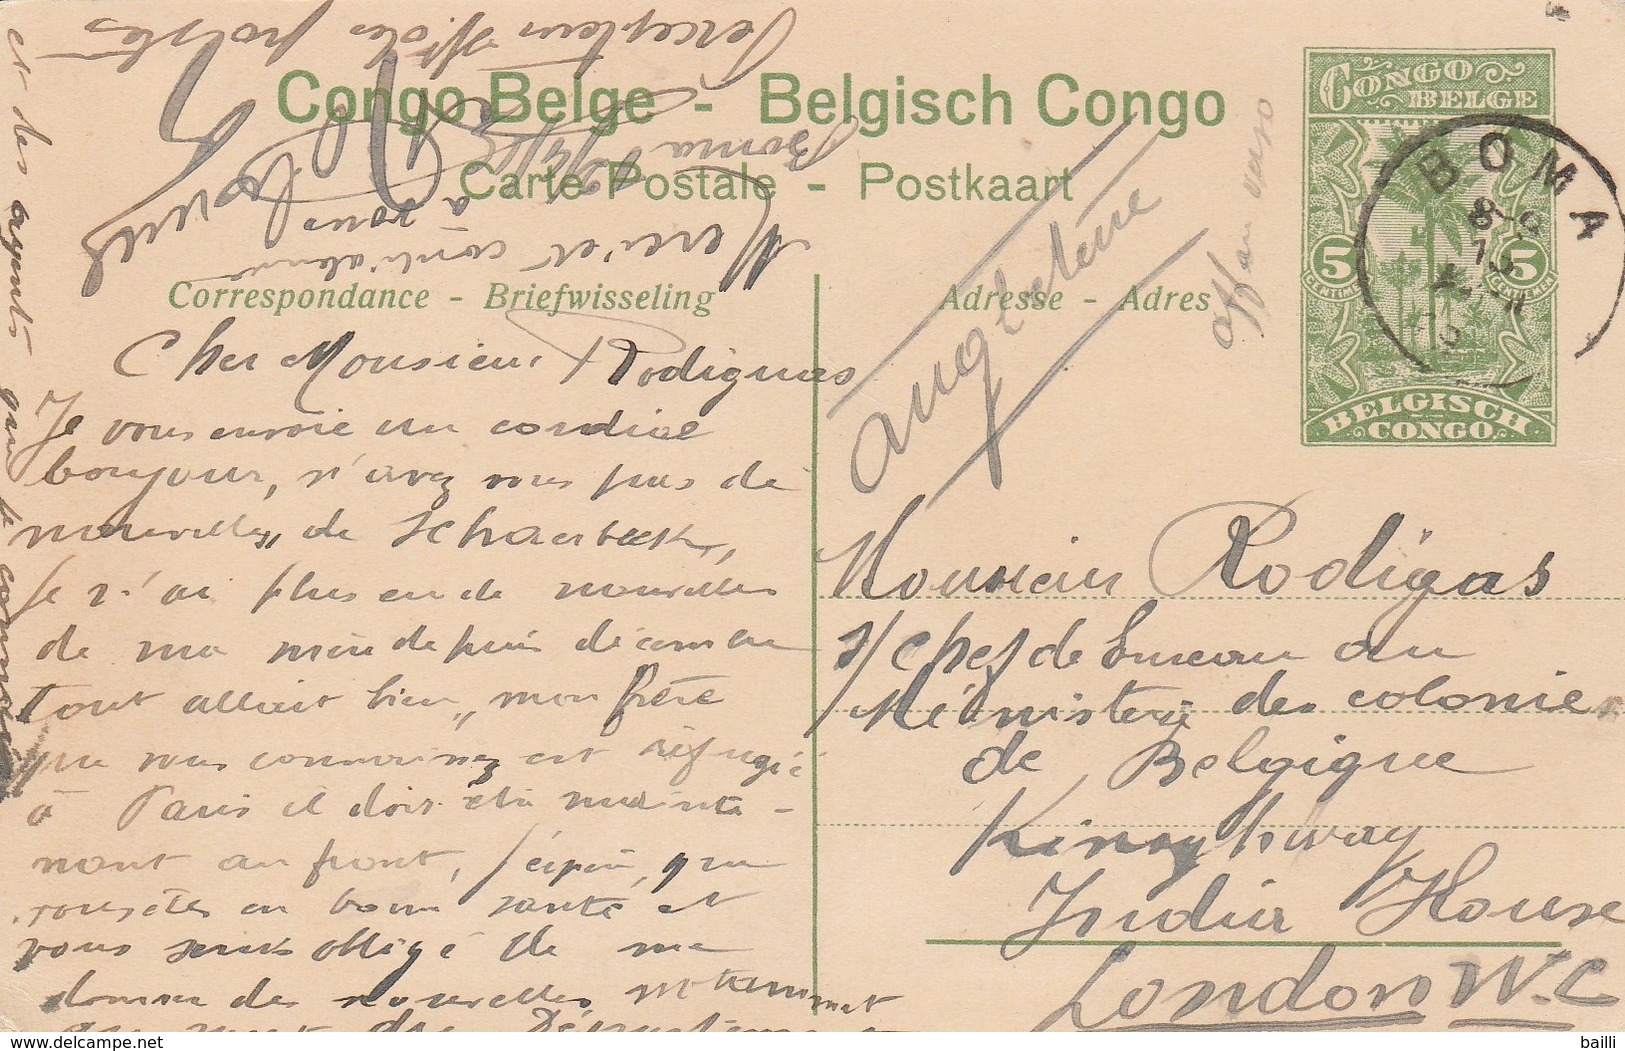 Congo Belge - Belgisch Congo
Carte Postale - Postkaart
Correspondance - Briefwisseling
Adresse - Adres
CONGO
BELGE
5 5
CENTIMES CENTIEMEN
BELGISCH
CONGO
BOMA
Angleterre
Cher Monsieur Rodigas
Je vous envoie un cordial
bonjour, n'avez vous pas de
nouvelles, de Schaerbeek,
je n'ai plus eu de nouvelles
de ma mère depuis décembre
tout allait bien, mon frère
que vous connaissez est réfugié
à Paris il doit être mainte-
nant au front, j'espère, que
vous êtes en bonne santé et
vous serais obligé de me
donner des nouvelles notamment
et des agents que je connais
Merci et cordialement
à vous
Boma
Percepteur des postes
Monsieur Rodigas
s/chef de bureau au
Ministère des colonies
de Belgique
Kingsway
India House
London W.C
bailli
delcampe.net